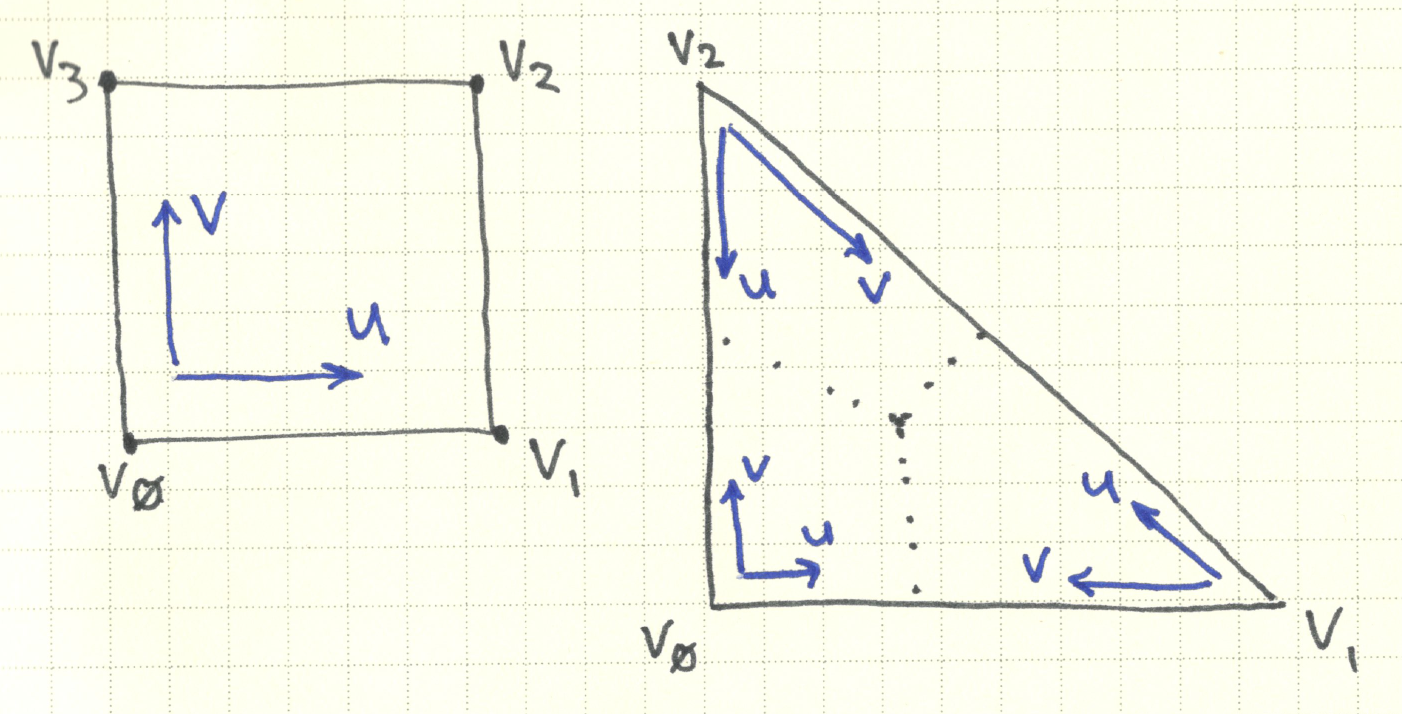 V3
V2
V
u
VØ
V1
V2
u
v
v
u
u
v
VØ
V1